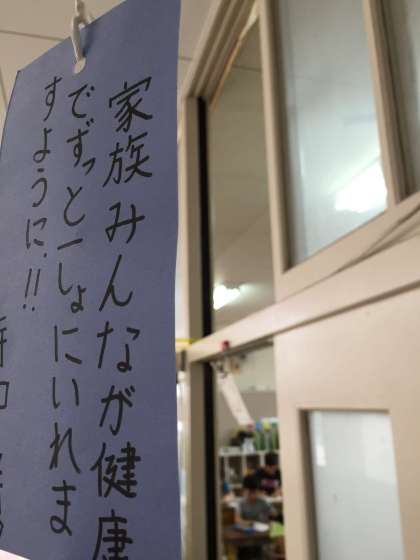 家族みんなが健康
でずっと一しょにいれま
すように!!